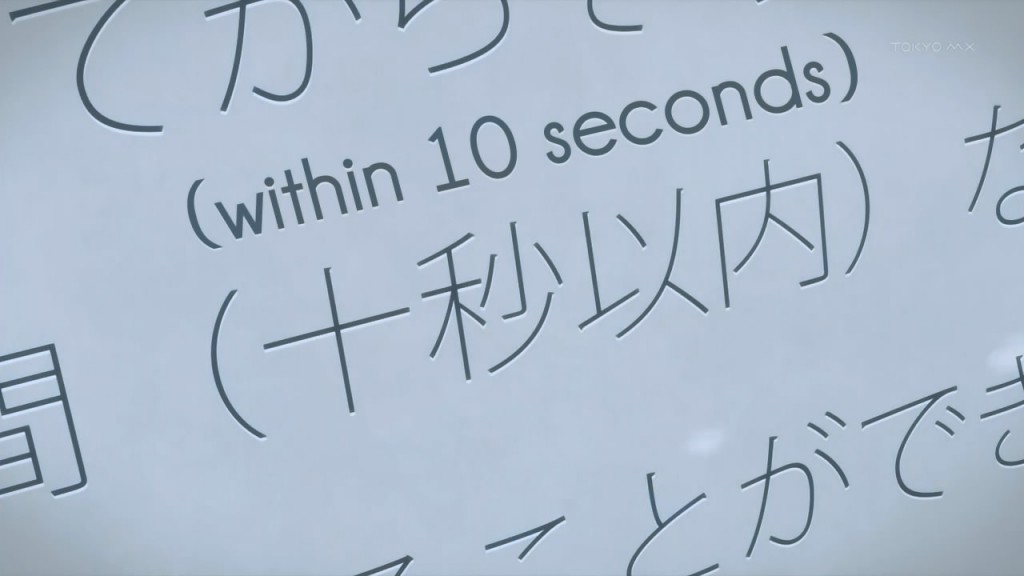 てから
TOKYO MX
(within 10 seconds)
(十秒以内)
な
間
ことができ